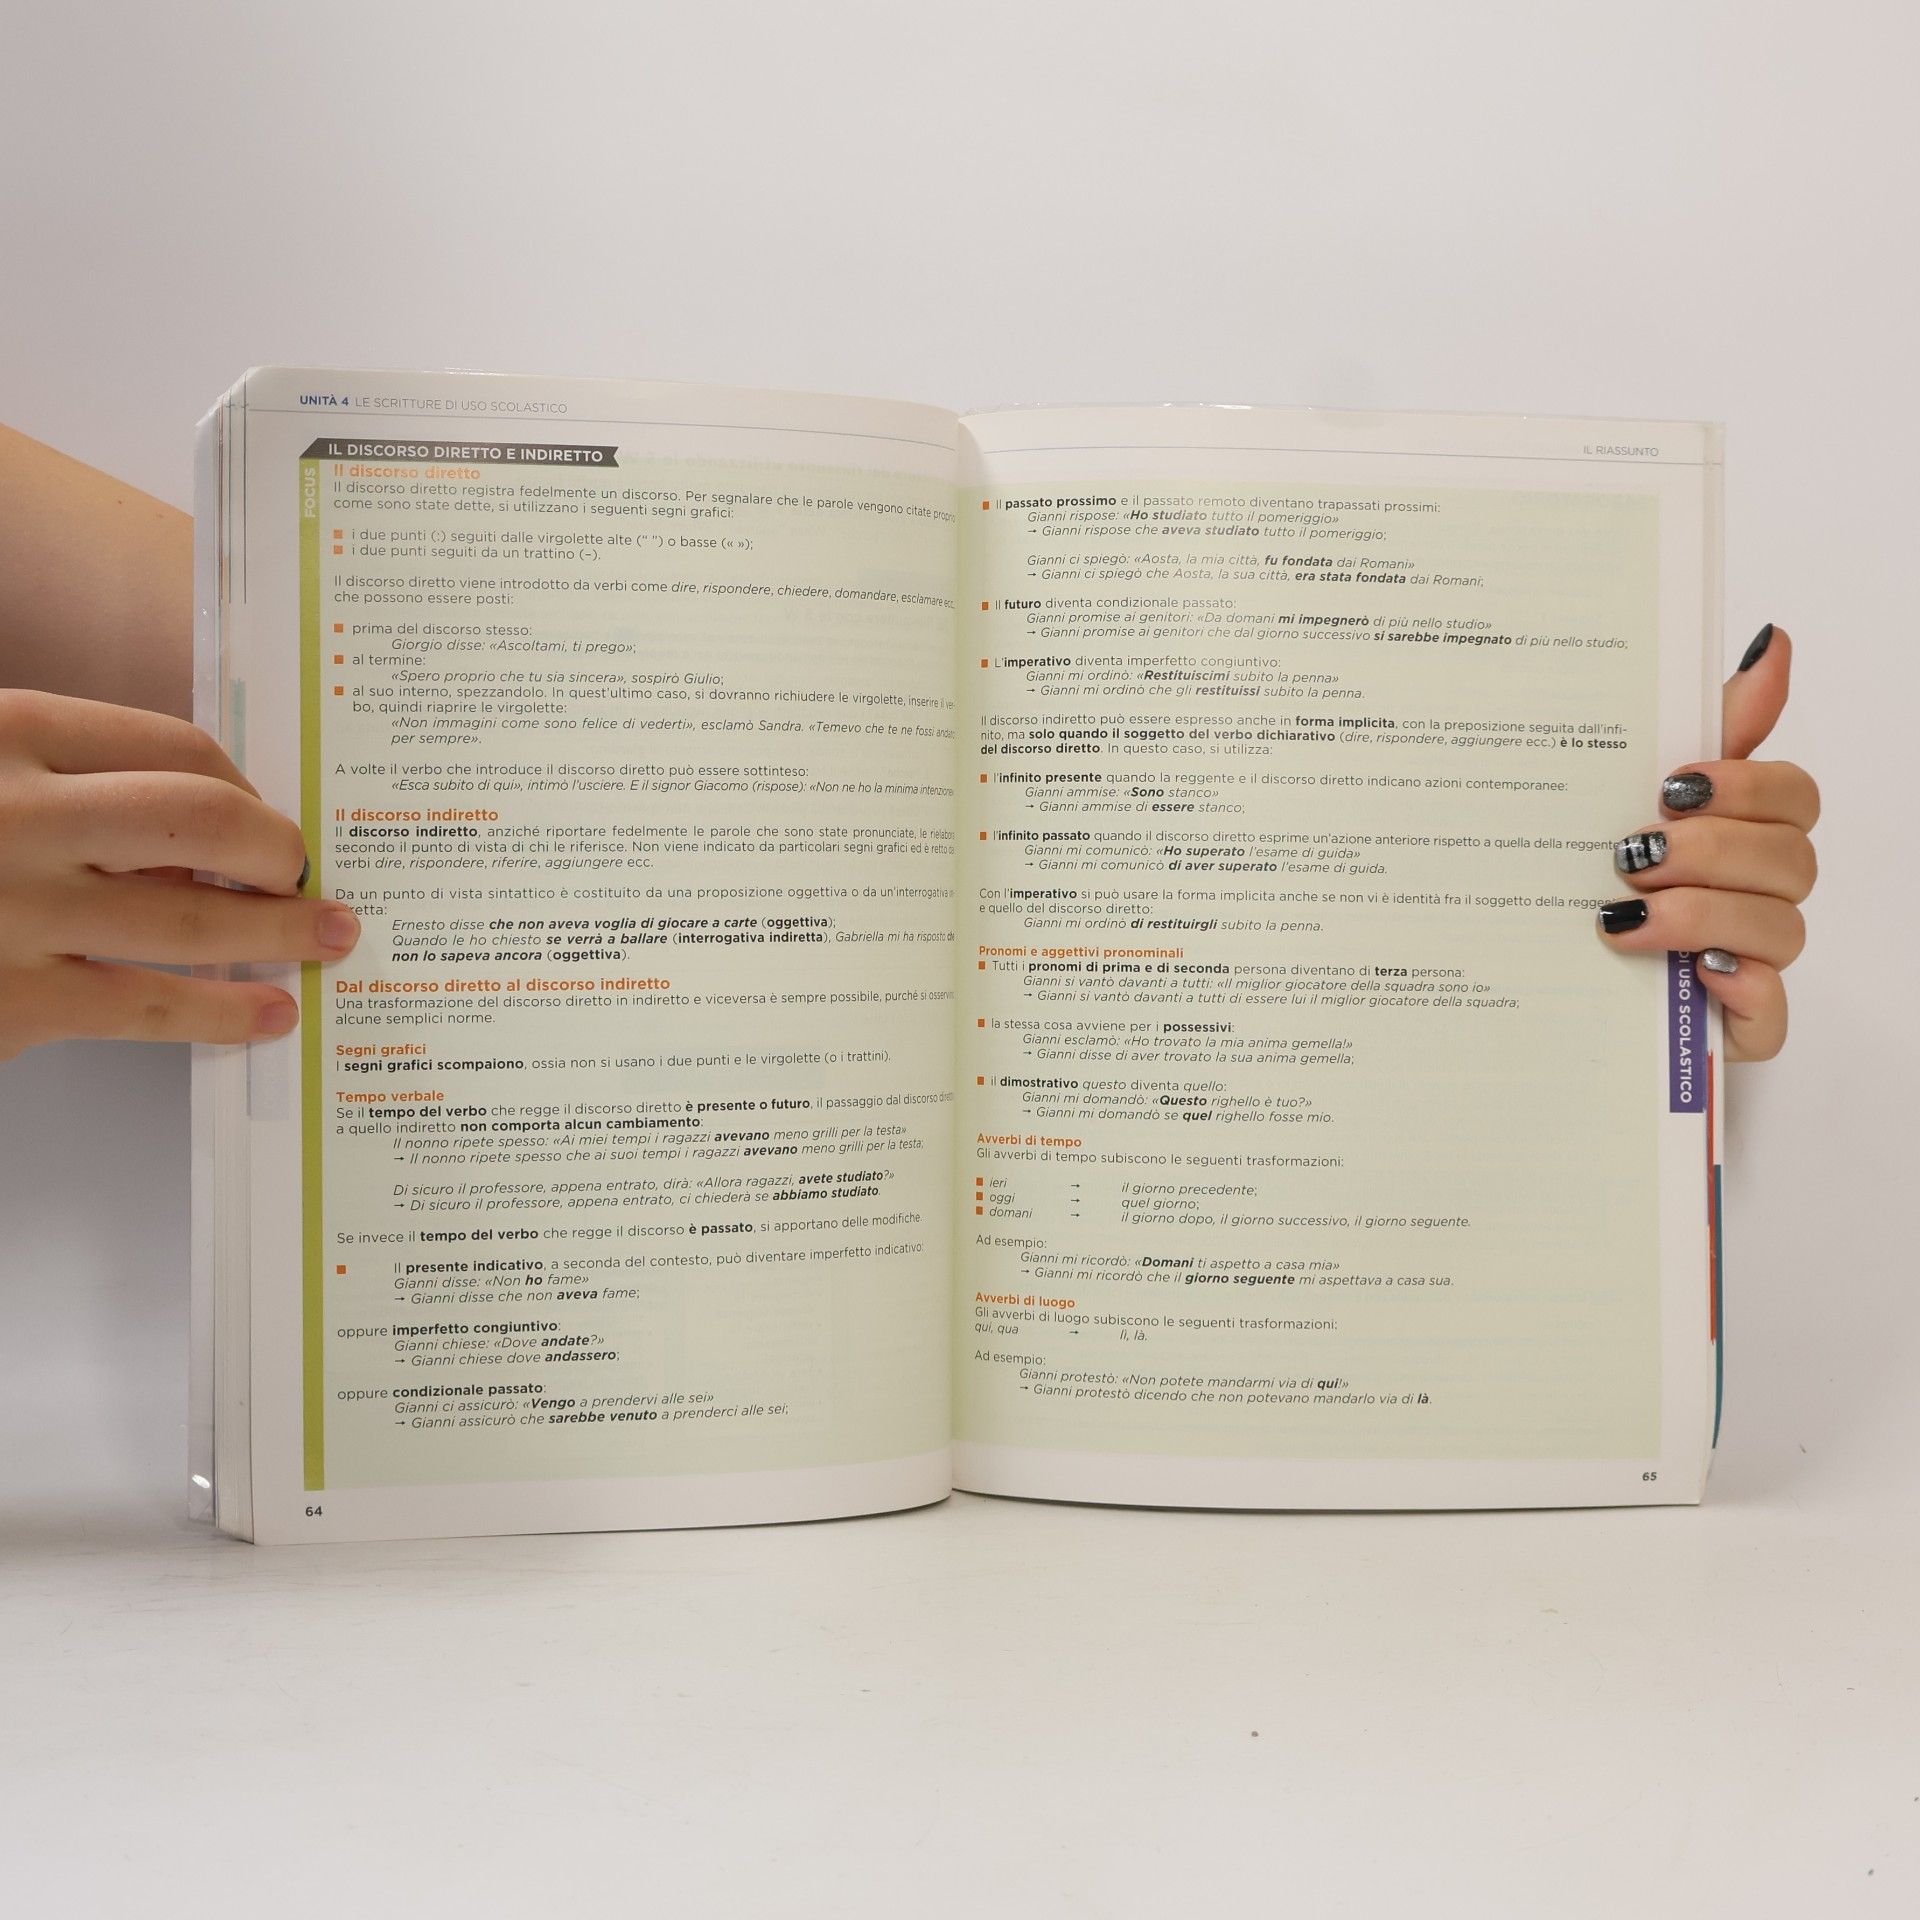 UNITÀ 4 LE SCRITTURE DI USO SCOLASTICO
IL DISCORSO DIRETTO E INDIRETTO
FOCUS
Il discorso diretto
Il discorso diretto registra fedelmente un discorso. Per segnalare che le parole vengono citate proprio
come sono state dette, si utilizzano i seguenti segni grafici:
■ i due punti (:) seguiti dalle virgolette alte (“ ”) o basse (« »);
■ i due punti seguiti da un trattino (–).
Il discorso diretto viene introdotto da verbi come dire, rispondere, chiedere, domandare, esclamare ecc.,
che possono essere posti:
■ prima del discorso stesso:
Giorgio disse: «Ascoltami, ti prego»;
■ al termine:
«Spero proprio che tu sia sincera», sospirò Giulio;
■ al suo interno, spezzandolo. In quest'ultimo caso, si dovranno richiudere le virgolette, inserire il ver-
bo, quindi riaprire le virgolette:
«Non immagini come sono felice di vederti», esclamò Sandra. «Temevo che te ne fossi andato
per sempre».
A volte il verbo che introduce il discorso diretto può essere sottinteso:
«Esca subito di qui», intimò l'usciere. E il signor Giacomo (rispose): «Non ne ho la minima intenzione
Il discorso indiretto
Il discorso indiretto, anziché riportare fedelmente le parole che sono state pronunciate, le rielabora
secondo il punto di vista di chi le riferisce. Non viene indicato da particolari segni grafici ed è retto da
verbi dire, rispondere, riferire, aggiungere ecc.
Da un punto di vista sintattico è costituito da una proposizione oggettiva o da un'interrogativa in-
retta:
Ernesto disse che non aveva voglia di giocare a carte (oggettiva);
Quando le ho chiesto se verrà a ballare (interrogativa indiretta), Gabriella mi ha risposto
non lo sapeva ancora (oggettiva).
Dal discorso diretto al discorso indiretto
Una trasformazione del discorso diretto in indiretto e viceversa è sempre possibile, purché si osservino
alcune semplici norme.
Segni grafici
I segni grafici scompaiono, ossia non si usano i due punti e le virgolette (o i trattini).
Tempo verbale
Se il tempo del verbo che regge il discorso diretto è presente o futuro, il passaggio dal discorso diretto
a quello indiretto non comporta alcun cambiamento:
Il nonno ripete spesso: «Ai miei tempi i ragazzi avevano meno grilli per la testa»
→ Il nonno ripete spesso che ai suoi tempi i ragazzi avevano meno grilli per la testa;
Di sicuro il professore, appena entrato, dirà: «Allora ragazzi, avete studiato?»
→ Di sicuro il professore, appena entrato, ci chiederà se abbiamo studiato.
Se invece il tempo del verbo che regge il discorso è passato, si apportano delle modifiche.
■ Il presente indicativo, a seconda del contesto, può diventare imperfetto indicativo:
Gianni disse: «Non ho fame»
→ Gianni disse che non aveva fame;
oppure imperfetto congiuntivo:
Gianni chiese: «Dove andate?»
→ Gianni chiese dove andassero;
oppure condizionale passato:
Gianni ci assicurò: «Vengo a prendervi alle sei»
→ Gianni assicurò che sarebbe venuto a prenderci alle sei;
64
IL RIASSUNTO
■ Il passato prossimo e il passato remoto diventano trapassati prossimi:
Gianni rispose: «Ho studiato tutto il pomeriggio»
→ Gianni rispose che aveva studiato tutto il pomeriggio;
Gianni ci spiegò: «Aosta, la mia città, fu fondata dai Romani»
→ Gianni ci spiegò che Aosta, la sua città, era stata fondata dai Romani;
■ Il futuro diventa condizionale passato:
Gianni promise ai genitori: «Da domani mi impegnerò di più nello studio»
→ Gianni promise ai genitori che dal giorno successivo si sarebbe impegnato di più nello studio;
■ L'imperativo diventa imperfetto congiuntivo:
Gianni mi ordinò: «Restituiscimi subito la penna»
→ Gianni mi ordinò che gli restituissi subito la penna.
Il discorso indiretto può essere espresso anche in forma implicita, con la preposizione seguita dall'infi-
nito, ma solo quando il soggetto del verbo dichiarativo (dire, rispondere, aggiungere ecc.) è lo stesso
del discorso diretto. In questo caso, si utilizza:
■ l'infinito presente quando la reggente e il discorso diretto indicano azioni contemporanee:
Gianni ammise: «Sono stanco»
→ Gianni ammise di essere stanco;
■ l'infinito passato quando il discorso diretto esprime un'azione anteriore rispetto a quella della reggente
Gianni mi comunicò: «Ho superato l'esame di guida»
→ Gianni mi comunicò di aver superato l'esame di guida.
Con l'imperativo si può usare la forma implicita anche se non vi è identità fra il soggetto della reggen
e quello del discorso diretto:
Gianni mi ordinò di restituirgli subito la penna.
Pronomi e aggettivi pronominali
■ Tutti i pronomi di prima e di seconda persona diventano di terza persona:
Gianni si vantò davanti a tutti: «Il miglior giocatore della squadra sono io»
→ Gianni si vantò davanti a tutti di essere lui il miglior giocatore della squadra;
■ la stessa cosa avviene per i possessivi:
Gianni esclamò: «Ho trovato la mia anima gemella!»
→ Gianni disse di aver trovato la sua anima gemella;
■ il dimostrativo questo diventa quello:
Gianni mi domandò: «Questo righello è tuo?»
→ Gianni mi domandò se quel righello fosse mio.
Avverbi di tempo
Gli avverbi di tempo subiscono le seguenti trasformazioni:
■ ieri → il giorno precedente;
■ oggi → quel giorno;
■ domani → il giorno dopo, il giorno successivo, il giorno seguente.
Ad esempio:
Gianni mi ricordò: «Domani ti aspetto a casa mia»
→ Gianni mi ricordò che il giorno seguente mi aspettava a casa sua.
Avverbi di luogo
Gli avverbi di luogo subiscono le seguenti trasformazioni:
qui, qua → lì, là.
Ad esempio:
Gianni protestò: «Non potete mandarmi via di qui!»
→ Gianni protestò dicendo che non potevano mandarlo via di là.
65
DI USO SCOLASTICO